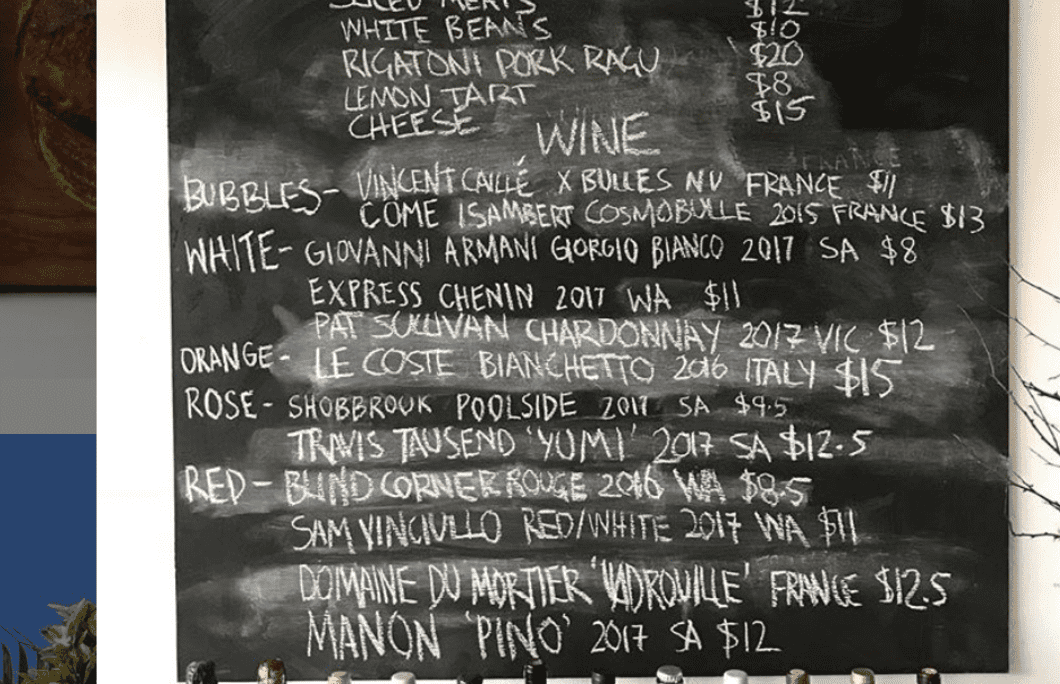 SLICED MEATS $12
WHITE BEANS $10
RIGATONI PORK RAGU $20
LEMON TART $8
CHEESE $15
WINE
FRANCE
BUBBLES- VINCENT CAILLÉ X BULLES NV FRANCE $11
COME ISAMBERT COSMOBULLE 2015 FRANCE $13
WHITE- GIOVANNI ARMANI GIORGIO BIANCO 2017 SA $8
EXPRESS CHENIN 2017 WA $11
PAT SULLIVAN CHARDONNAY 2017 VIC $12
ORANGE- LE COSTE BIANCHETTO 2016 ITALY $15
ROSE- SHOBBROOK POOLSIDE 2017 SA $9.5
TRAVIS TAUSEND 'YUMI' 2017 SA $12.5
RED- BLIND CORNER ROUGE 2016 WA $8.5
SAM VINCIULLO RED/WHITE 2017 WA $11
DOMAINE DU MORTIER 'VADROUILLE' FRANCE $12.5
MANON 'PINO' 2017 SA $12